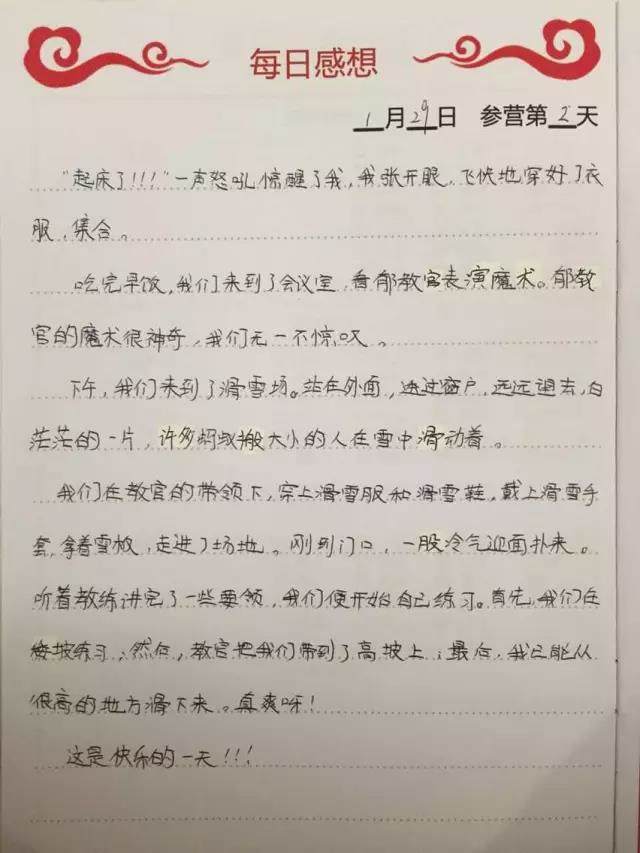 每日感想
1月29日 参营第2天
"起床了!!!"一声怒吼惊醒了我,我张开眼,飞快地穿好了衣
服,集合。
吃完早饭,我们来到了会议室,看郁教官表演魔术。郁教
官的魔术很神奇,我们无一不惊叹。
下午,我们来到了滑雪场。站在外面,透过窗户,远远望去,白
茫茫的一片,许多蚂蚁般大小的人在雪中滑动着。
我们在教官的带领下,穿上滑雪服和滑雪鞋,戴上滑雪手
套,拿着雪板,走进了场地。刚到门口,一股冷气迎面扑来。
听着教练讲完了一些要领,我们便开始自己练习。首先,我们在
缓坡练习;然后,教官把我们带到了高坡上;最后,我已能从
很高的地方滑下来。真爽呀!
这是快乐的一天!!!